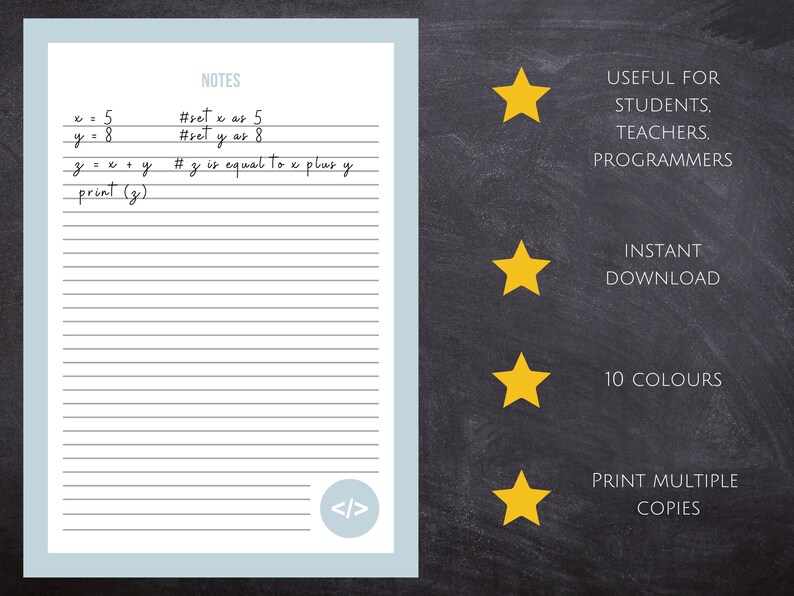 NOTES
x = 5 #set x as 5
y = 8 #set y as 8
z = x + y # z is equal to x plus y
print (z)
</>
USEFUL FOR
STUDENTS,
TEACHERS,
PROGRAMMERS
INSTANT
DOWNLOAD
10 COLOURS
PRINT MULTIPLE
COPIES